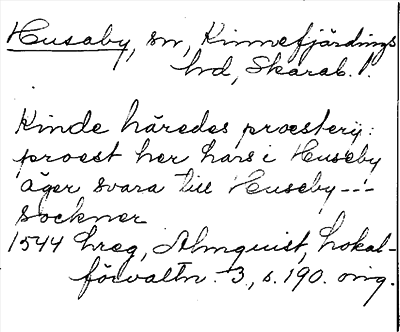 Husaby, sn, Kinnefjärdings
hd, Skarab. l.
Kinde häredes proesterij:
proest her hans i Huseby
äger svara till Huseby--:-
sockner
1544 hreg, Almquist, Lokal-
förvaltn. 3, s. 190. orig.